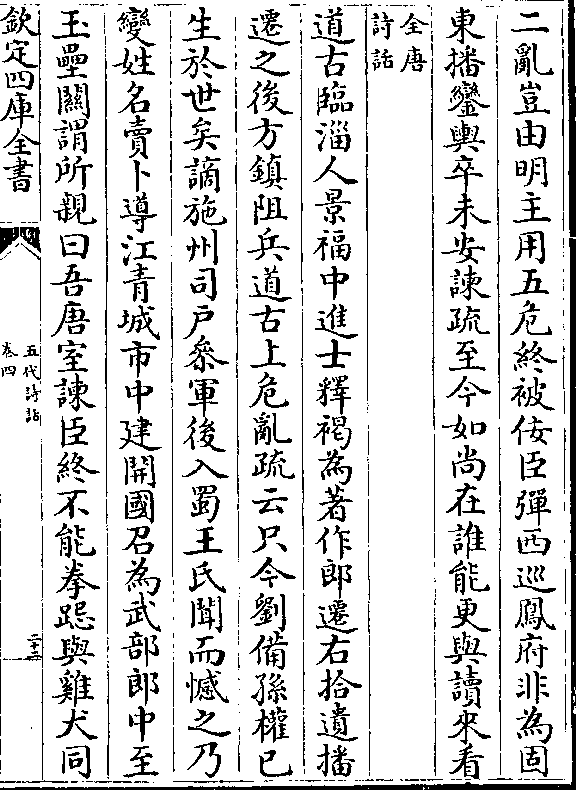 二亂豈由明主用五危終被佞臣彈西巡鳳府非為固
東播鑾輿卒未安諫疏至今如尚在誰能更與讀來看
全唐
詩話
道古臨淄人景福中進士釋褐為著作郎遷右拾遺播
遷之後方鎮阻兵道古上危亂疏云只今劉備孫權已
生於世矣謫施州司戶叅軍後入蜀王氏聞而憾之乃
變姓名賣卜導江青城市中建開國召為武部郎中至
玉壘關謂所親曰吾唐室諫臣終不能拳跽與雞犬同
欽定四庫全書
五代詩話
卷四
二十二